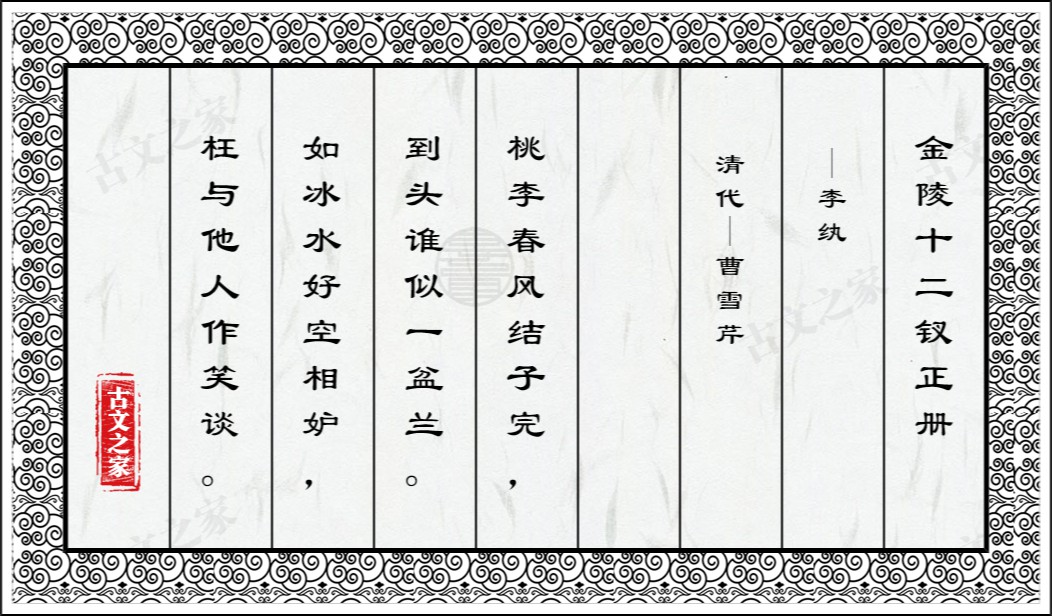 金陵十二钗正册
—李纨
清代—曹雪芹
桃李春风结子完，
到头谁似一盆兰。
如冰水好空相妒，
枉与他人作笑谈。
古文之家
古文之家
古文之家
古文之家